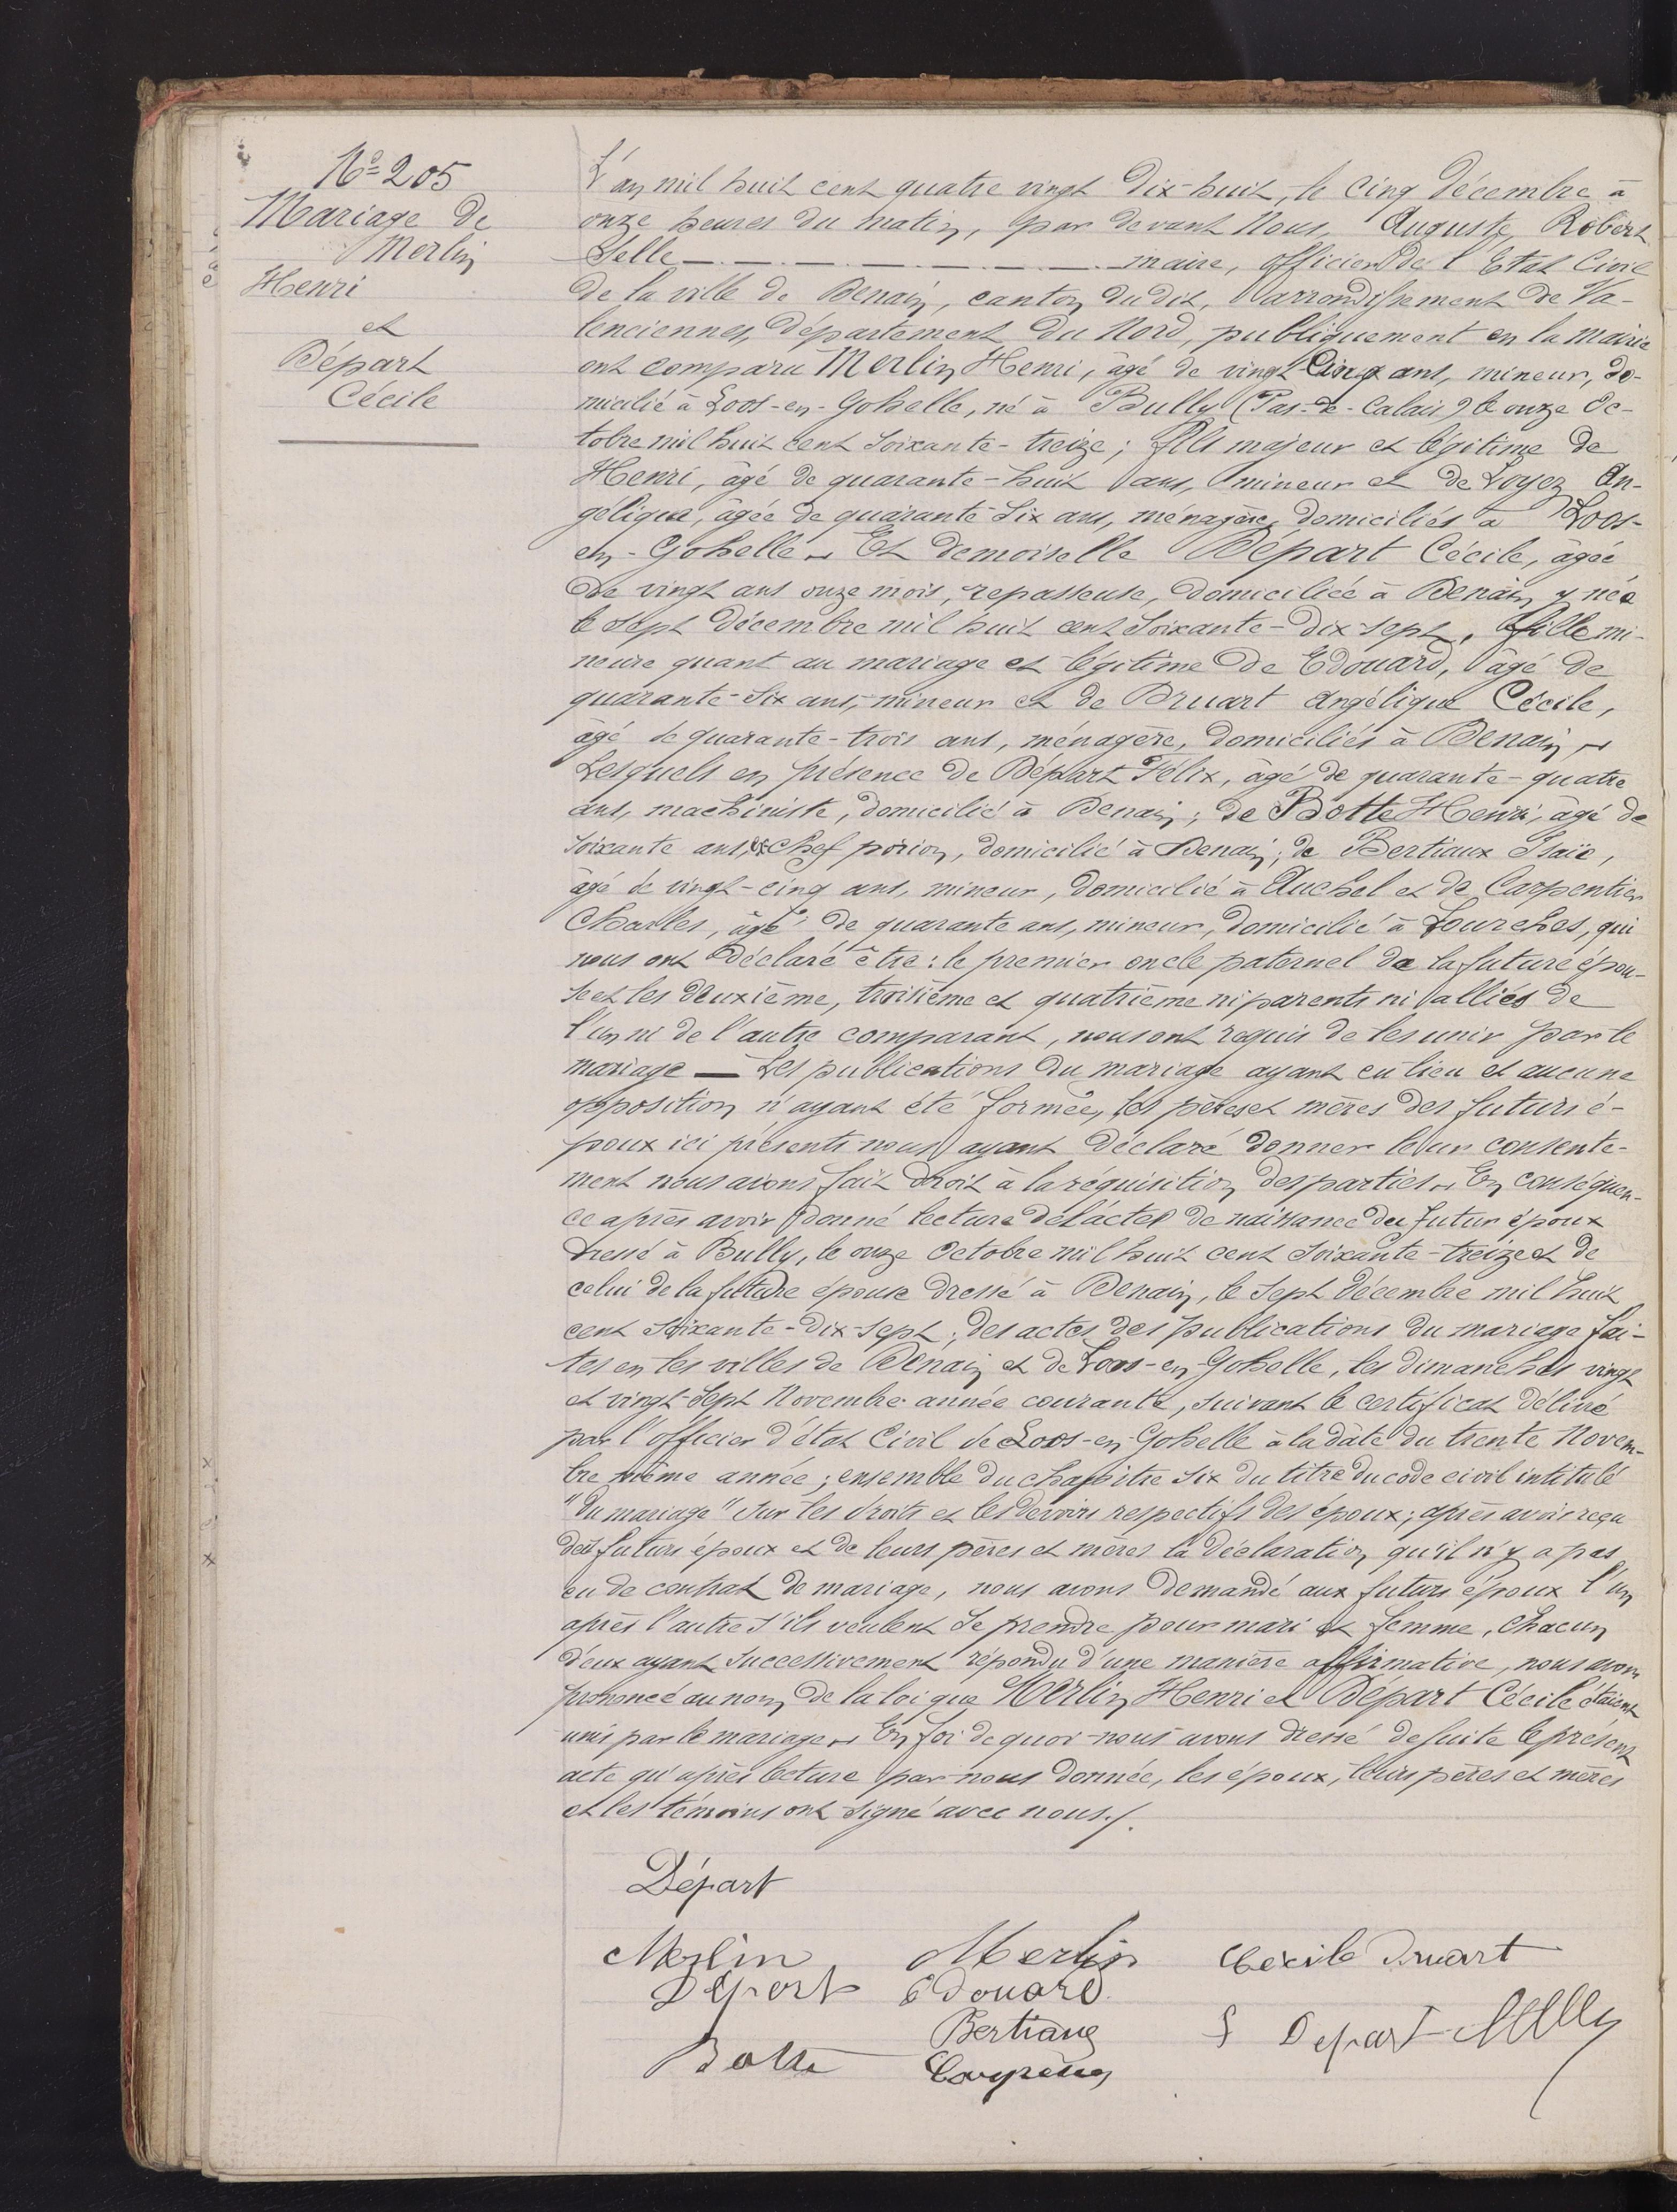 Nº 205
Mariage de
Merlin
Henri
et
Départ
Cécile
L'an mil huit cent quatre vingt dix-huit, le cinq décembre à
onze heures du matin, par devant Nous, Auguste, Robert
Selle maire, officier de l'Etat Civil
de la ville de Denain, canton dudit, arrondissement de Va-
lenciennes, département du Nord, publiquement en la mairie
ont comparu Merlin Henri, âgé de vingt cinq ans, mineur, do-
micilié à Loos-en-Gohelle, né à Bully (Pas-de-Calais) le onze oc-
tobre mil huit cent soixante-treize; fils majeur et légitime de
Henri, âgé de quarante-huit ans, mineur et de Loyez An-
gélique, âgée de quarante-six ans, ménagère, domiciliés à Loos-
en-Gohelle. Et demoiselle Départ Cécile, âgée
de vingt ans onze mois, repasseuse, domiciliée à Denain y née
le sept décembre mil huit cent soixante-dix-sept, fille mi-
neure quant au mariage et légitime de Edouard, âgé de
quarante-six ans, mineur et de Druart Angélique Cécile,
âgé de quarante-trois ans, ménagère, domiciliés à Denain
Lesquels en présence de Départ Félix, âgé de quarante-quatre
ans, machiniste, domicilié à Denain; de Botte Henri, âgé de
soixante ans, ex chef porion, domicilié à Denain; de Bertiaux Isaïe,
âgé de vingt-cinq ans, mineur, domicilié à Auchel et de Carpentier
Charles, âgé de quarante ans, mineur, domicilié à Lourches, qui
nous ont déclaré être: le premier oncle paternel de la future épou-
se et les deuxième, troisième et quatrième ni parents ni alliés de
l'un ni de l'autre comparant, nous ont requis de les unir par le
mariage — Les publications du mariage ayant eu lieu et aucune
opposition n'ayant été formée, les pères et mères des futurs é-
poux ici présents nous ayant déclaré donner leur consente-
ment nous avons fait droit à la réquisition des parties. En conséquen-
ce après avoir donné lecture de l'acte de naissance du futur époux
dressé à Bully, le onze Octobre mil huit cent soixante-treize et de
celui de la future épouse dressé à Denain, le sept décembre mil huit
cent soixante-dix-sept; des actes des publications du mariage fai-
tes en les villes de Denain et de Loos-en-Gohelle, les dimanches vingt
et vingt-sept Novembre année courante, suivant le certificat délivré
par l'officier d'état Civil de Loos-en-Gohelle à la date du trente Novem-
bre même année; ensemble du chapitre six du titre du code civil intitulé
"du mariage" sur les droits et les devoirs respectifs des époux; après avoir reçu
des futurs époux et de leurs pères et mères la déclaration qu'il n'y a pas
eu de contrat de mariage, nous avons demandé aux futurs époux l'un
après l'autre s'ils veulent se prendre pour mari et femme, chacun
d'eux ayant successivement répondu d'une manière affirmative, nous avons
prononcé au nom de la loi que Merlin Henri et Départ Cécile étaient
unis par le mariage. En foi de quoi nous avons dressé de suite le présent
acte qu'après lecture par nous donnée, les époux, leurs pères et mères
et les témoins ont signé avec nous./.
Départ
Merlin Merlin Cécile Druart
Départ Edouard
Bertiaux
F Depart Selle
Botte